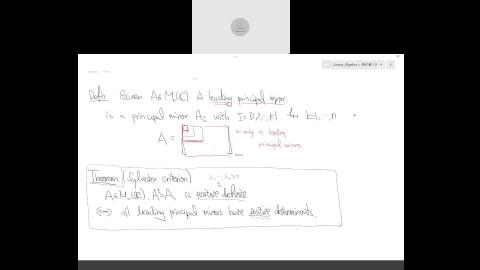 Defn Given A∈Mₙ(ℂ) A leading principal minor
is a principal minor A_I with I={1,2,…,k} for k=1,…,n
A =
n×n
only n leading
principal minors
Theorem (Sylvester criterion) λ₁,…,λₙ>0
A∈Mₙ(ℂ), A*=A, is positive definite
⟺ all leading principal minors have positive determinants.